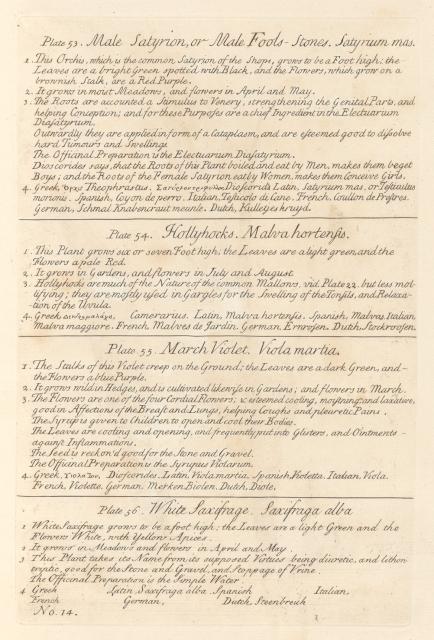 Plate 53. Male Satyrion, or Male Fools-Stones. Satyrium mas.
1. This Orchis, which is the common Satyrion of the Shops, grows to be a Foot high; the
Leaves are a bright Green spotted with Black, and the Flowers, which grow on a
brownish Stalk, are a Red Purple.
2. It grows in moist Meadows, and flowers in April and May.
3. The Roots are accounted a Stimulus to Venery, strengthening the Genital Parts, and
helping Conception; and for these Purposes are a chief Ingredient in the Electuarium
Diasatyrium.
Outwardly they are applied in form of a Cataplasm, and are esteemed good to dissolve
hard Tumours and Swellings
The Officinal Preparation is the Electuarium Diasatyrium.
Dioscorides says, that the Roots of this Plant boiled and eat by Men, makes them beget
Boys; and the Roots of the Female Satyrion eat by Women, makes them Conceive Girls.
4. Greek, Ορχις Theophrastus. Dioscorid. Latin, Satyrium mas, or Testiculus
morionis. Spanish, Coyon de perro. Italian, Testicolo di Cane. French, Couillon de Prestres.
German, Schmal Knabenkraut meunle. Dutch, Kulletjes kruyd.
Plate 54. Hollyhocks. Malva hortensis.
1. This Plant grows six or seven Foot high; the Leaves are a light green, and the
Flowers a pale Red.
2. It grows in Gardens, and flowers in July and August.
3. Hollyhocks are much of the Nature of the common Mallows, vid. Plate 22. but less mol-
lifying; they are mostly used in Gargles for the Swelling of the Tonsils, and Relaxa-
tion of the Uvula.
4. Greek, Camerarius. Latin, Malva hortensis. Spanish, Malvas, Italian,
Malva maggiore. French, Malves de Jardin. German, Ernrosen. Dutch, Stockroosen.
Plate 55. March Violet. Viola martia.
1. The Stalks of this Violet creep on the Ground; the Leaves are a dark Green, and
the Flowers a blue Purple.
2. It grows wild in Hedges, and is cultivated likewise in Gardens; and flowers in March.
3. The Flowers are one of the four Cordial Flowers; & esteemed cooling, moistning, and laxative,
good in Affections of the Breast and Lungs, helping Coughs and pleuretic Pains.
The Syrup is given to Children to open and cool their Bodies.
The Leaves are cooling and opening, and frequently put into Glisters, and Ointments
against Inflammations.
The Seed is reckon'd good for the Stone and Gravel.
The Officinal Preparation is the Syrupus Violarum.
4. Greek, Dioscorides. Latin, Viola martia. Spanish, Violetta. Italian, Viola.
French, Violette. German, Merken Violen. Dutch, Viole.
Plate 56. White Saxifrage. Saxifraga alba
1 White Saxifrage grows to be a foot high; the Leaves are a light Green and the
Flowers White, with Yellow Apices.
2 It grows in Meadows and flowers in April and May.
3 This Plant takes its Name from its supposed Virtues being diuretic, and lithon-
tryptic, good for the Stone and Gravel, and Stoppage of Urine.
The Officinal Preparation is the Simple Water
4 Greek Latin, Saxifraga alba. Spanish Italian,
French German, Dutch, Steenbreuk
No. 14.